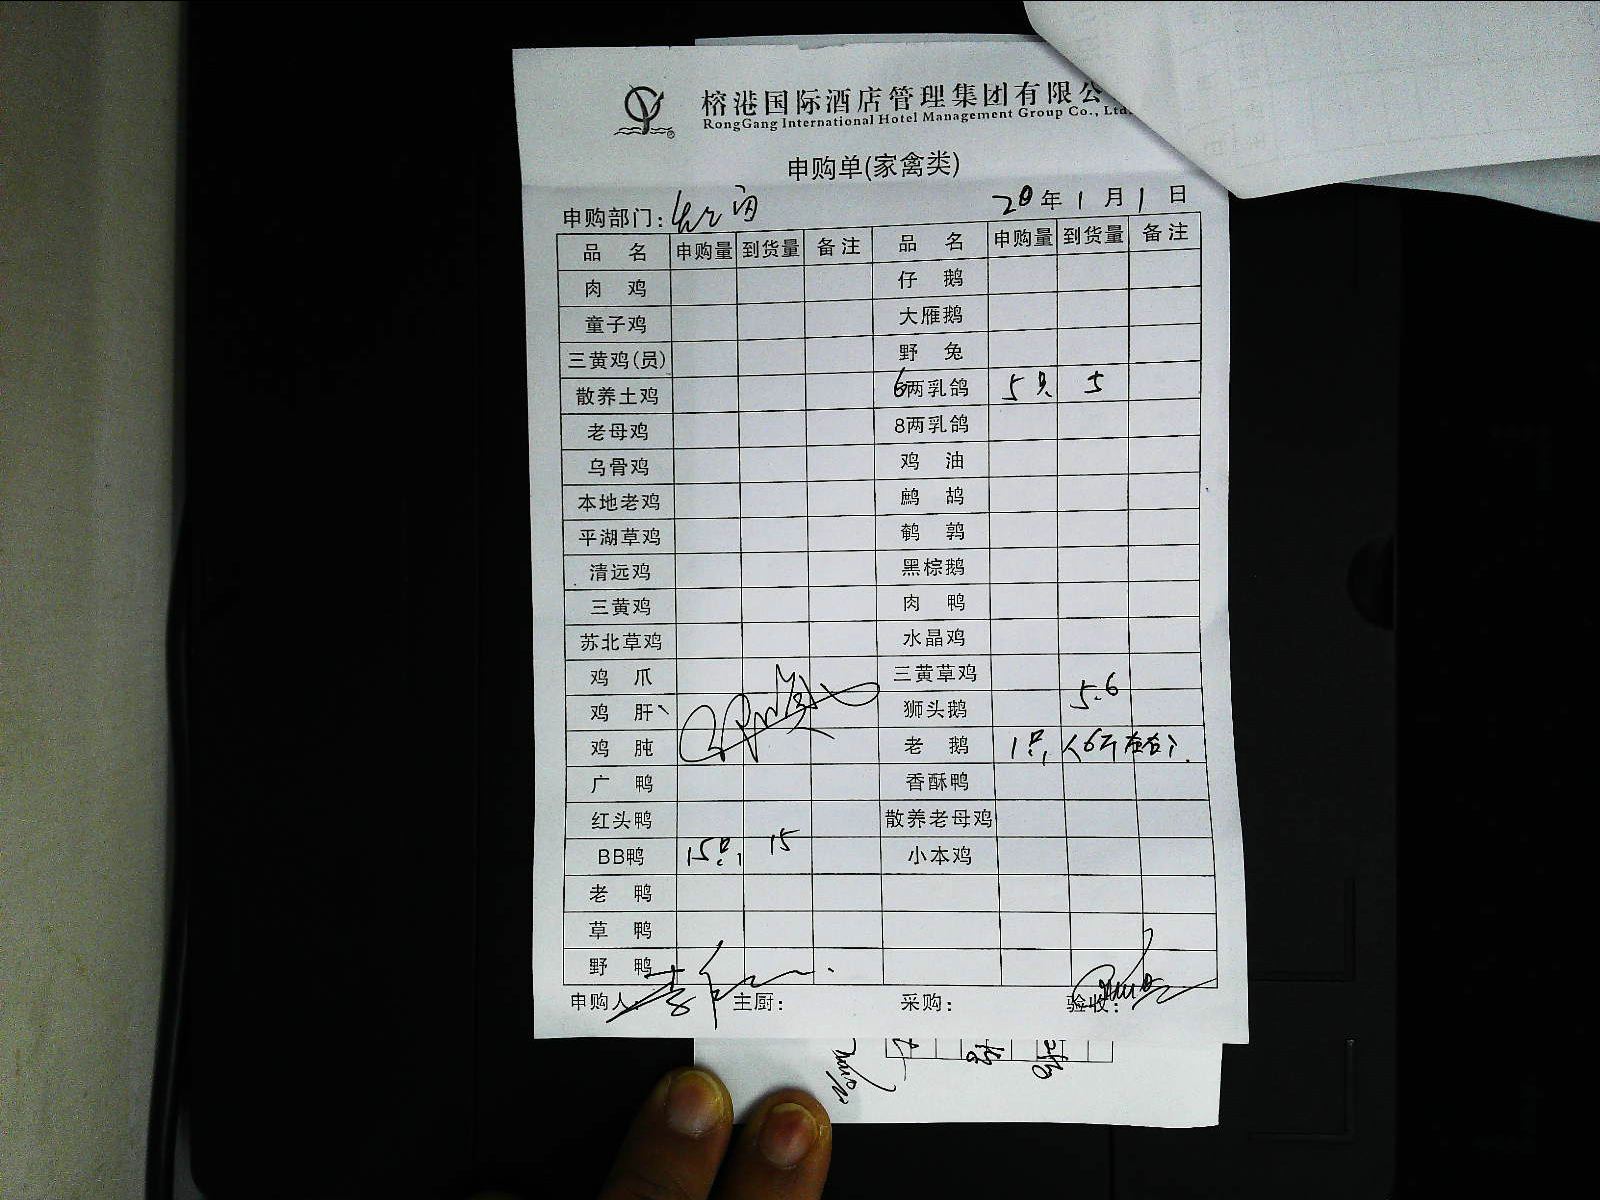 榕港国际酒店管理集团有限公
RongGang International Hotel Management Group Co., Ltd.
申购单(家禽类)
申购部门:
20年1月1日
品名 申购量 到货量 备注 品名 申购量 到货量 备注
肉鸡 仔鹅
童子鸡 大雁鹅
三黄鸡(员) 野兔
散养土鸡 6两乳鸽 5只 5
老母鸡 8两乳鸽
乌骨鸡 鸡油
本地老鸡 鹧鸪
平湖草鸡 鹌鹑
清远鸡 黑棕鹅
三黄鸡 肉鸭
苏北草鸡 水晶鸡
鸡爪 三黄草鸡
鸡肝 狮头鹅 5.6
鸡肫 老鹅 1只 6斤左右
广鸭 香酥鸭
红头鸭 散养老母鸡
BB鸭 15只 15 小本鸡
老鸭
草鸭
野鸭
申购人: 主厨: 采购: 验收: